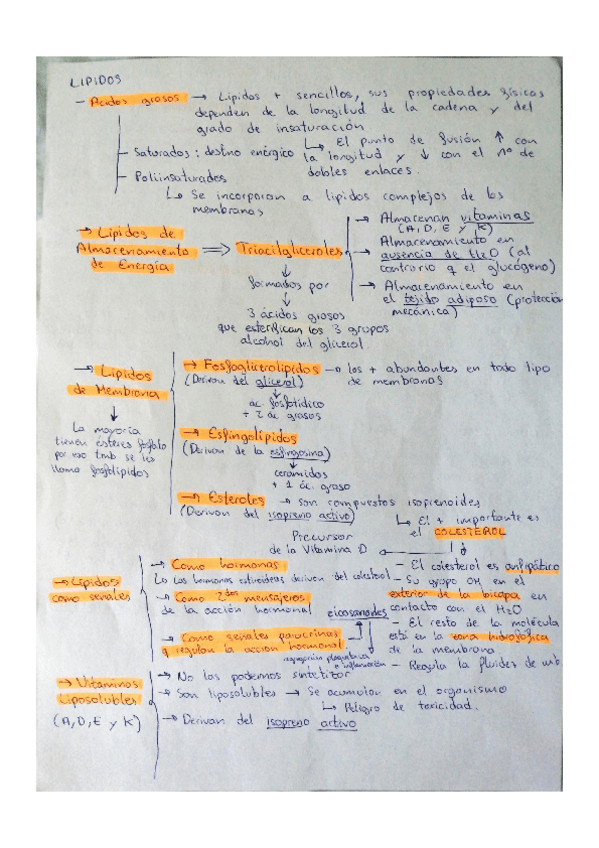 LIPIDOS
- Ácidos grasos → Lípidos + sencillos, sus propiedades físicas
dependen de la longitud de la cadena y del
grado de insaturación
↳ El punto de fusión ↑ con
la longitud y ↓ con el nº de
dobles enlaces.
- Saturados: destino energético
- Poliinsaturados
↳ Se incorporan a lípidos complejos de las
membranas
→ Lípidos de
Almacenamiento
de Energía
⇒ Triacilgliceroles
↓
formados por
↓
3 ácidos grasos
que esterifican los 3 grupos
alcohol del glicerol.
→ Almacenan vitaminas
(A, D, E y K)
→ Almacenamiento en
ausencia de H2O (al
contrario q el glucógeno)
→ Almacenamiento en
el tejido adiposo (protección
mecánica)
→ Lípidos
de Membrana
↓
La mayoría
tienen ésteres fosfato
por eso tmb se les
llama fosfolípidos
→ Fosfoglicerolípidos → los + abundantes en todo tipo
de membranas
(Derivan del glicerol)
↓
ac. fosfatídico
+ 2 ác grasos
→ Esfingolípidos
(Derivan de la esfingosina)
↓
ceramidas
+ 1 ác. graso
→ Esteroles → son compuestos isoprenoides
(Derivan del isopreno activo)
↳ El + importante es
el COLESTEROL
Precursor
de la Vitamina D
- El colesterol es anfipático
- Su grupo OH en el
exterior de la bicapa en
contacto con el H2O
- El resto de la molécula
está en la zona hidrofóbica
de la membrana
- Regula la fluidez de mb
→ Lípidos
como señales
→ Como hormonas
↳ Las hormonas esteroideas derivan del colesterol
→ Como 2dos mensajeros
de la acción hormonal
→ Como señales paracrinas
q regulan la acción hormonal
eicosanoides
agregación plaquetaria
e inflamación
→ Vitaminas
Liposolubles
(A, D, E y K)
→ No las podemos sintetizar
→ Son liposolubles → Se acumulan en el organismo
↳ Peligro de toxicidad.
→ Derivan del isopreno activo